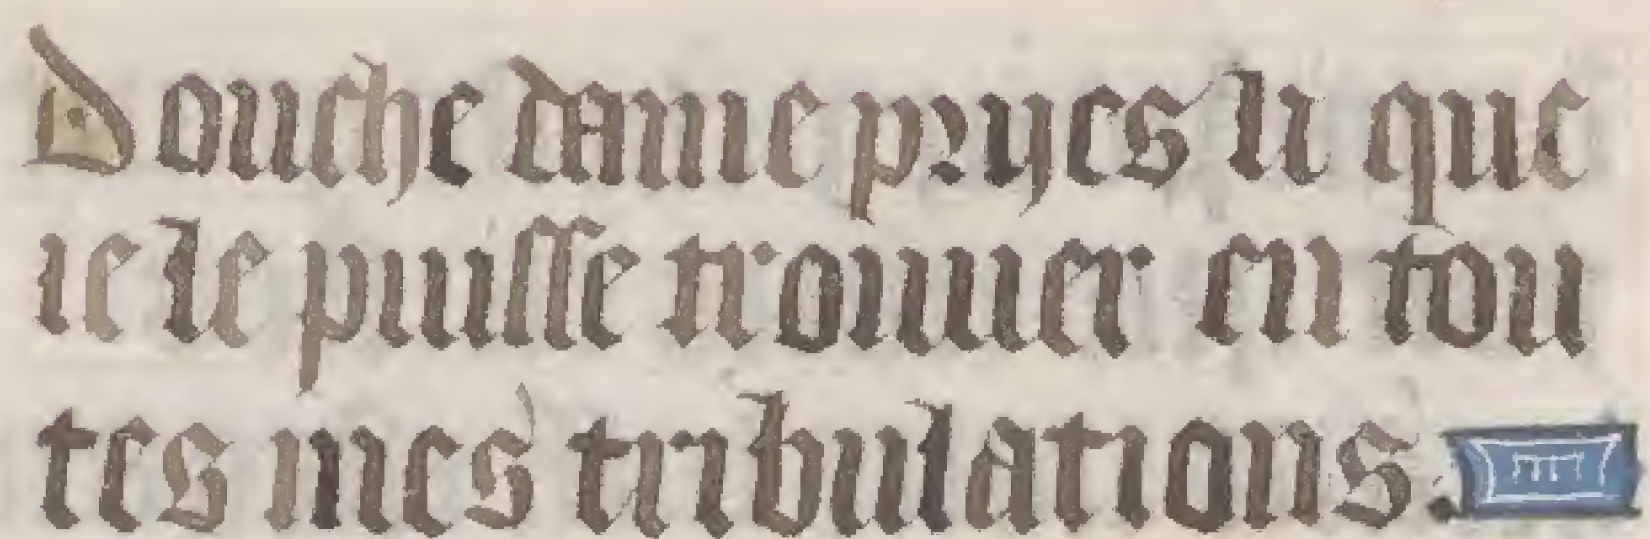 Douche dame pryes li que
ie le puisse trouuer en tou
tes mes tribulations.